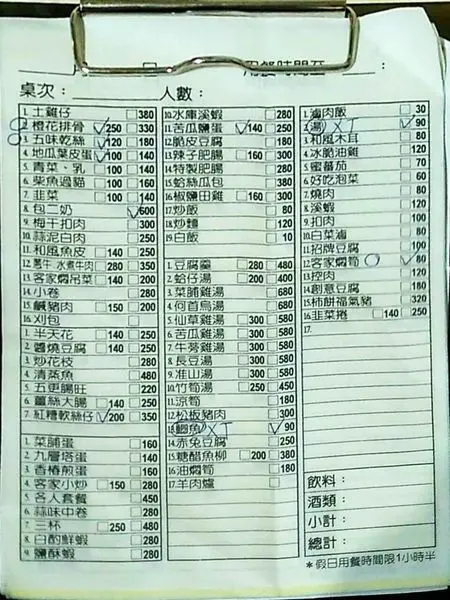 月 日 用餐時間至 :
桌次: 人數:
1.土雞仔 380
2.橙花排骨 250 330
3.五味乾絲 120 180
4.地瓜葉皮蛋 100 140
5.青菜、乳 100 140
6.柴魚過貓 100 160
7.韭菜 100 140
8.包二奶 600
9.梅干扣肉 300
10.蒜泥白肉 250
11.和風魚皮 140 250
12.蔥牛 水煮牛肉 280 350
13.客家燜吊菜 140 200
14.小卷 280
15.鹹豬肉 150 200
16.刈包
1.半天花 140 250
2.醬燒豆腐 140 250
3.炒花枝 280
4.清蒸魚 480
5.五更腸旺 220
6.薑絲大腸 140 250
7.紅糟軟絲仔 200 350
1.菜脯蛋 160
2.九層塔蛋 140
3.香樁煎蛋 160
4.客家小炒 150 280
5.各人套餐 450
6.蒜味中卷 280
7.三杯 250 480
8.白酌鮮蝦 280
9.鹽酥蝦 280
10.水庫溪蝦 280
11.苦瓜鹽蛋 140 250
12.脆皮豆腐 180
13.辣子肥腸 160 300
14.特製肥腸 280
15.蛤絲瓜包 380
16.椒鹽田雞 160 300
17.炒飯 80
18.炒麵 120
19.白飯 10
1.豆腐羹 280 480
2.蛤仔湯 200 400
3.菜脯雞湯 680
4.何首烏湯 680
5.仙草雞湯 300 580
6.苦瓜雞湯 300 580
7.牛蒡雞湯 300 580
8.長豆湯 300 580
9.淮山湯 300 580
10.竹筍湯 250 450
11.涼筍 180
12.松板豬肉 300
13.鯽魚 X1 90
14.赤兔豆腐 250
15.糖醋魚柳 200 380
16.油燜筍 180
17.羊肉爐
1.滷肉飯 30
2.湯 X1 90
3.和風木耳 80
4.冰脆油雞 120
5.蜜蕃茄 70
6.好吃泡菜 60
7.燒肉 80
8.溪蝦 120
9.扣肉 100
10.白菜滷 80
11.招牌豆腐 100
12.客家燜筍 80
13.控肉 120
14.創意豆腐 180
15.柿餅福氣豬 320
16.韭菜捲 140 250
17.
飲料:
酒類:
小計:
總計:
*假日用餐時間限1小時半